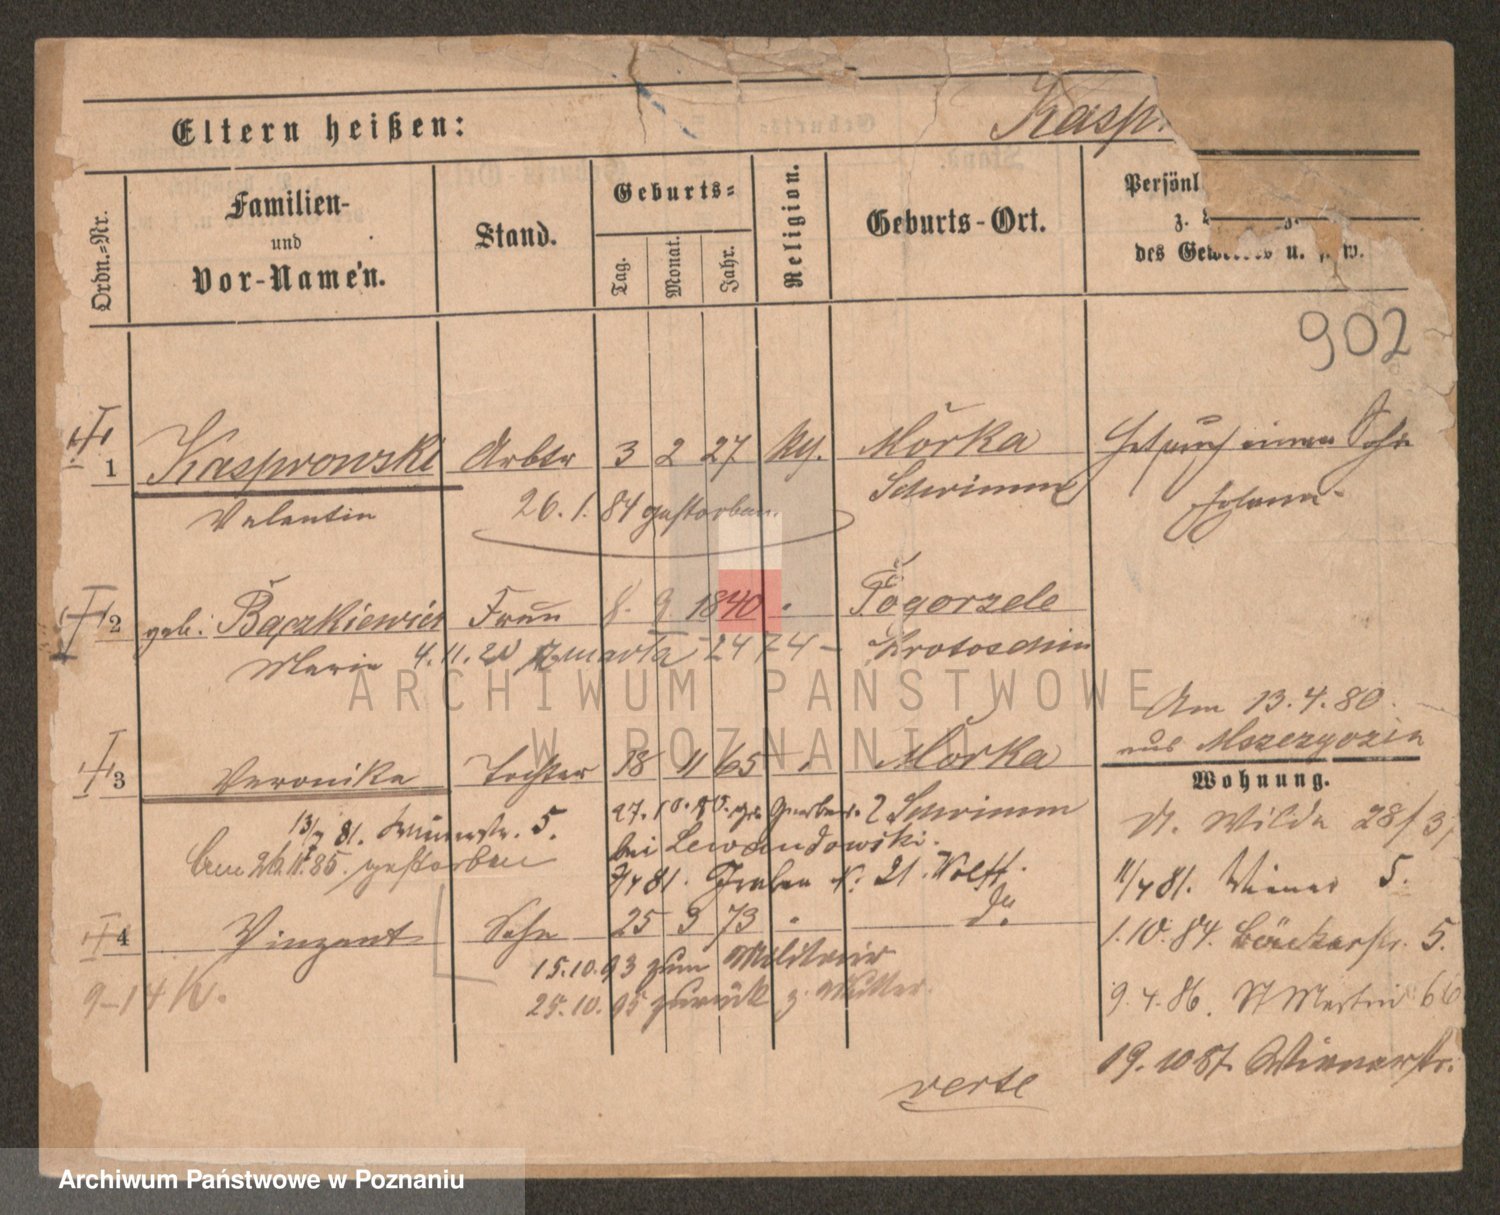 Eltern heißen:
Kasp.
Ordn.-Nr.
Familien-
und
Vor-Namen.
Stand.
Geburts-
Tag.
Monat.
Jahr.
Religion.
Geburts-Ort.
Persönl
z.
des Gewerbes u. s. w.
902
1 Kasprowski Arbtr 3 2 27 kth. Mórka
Valentin 26. 1. 84 gestorben. Schrimm
einen Sohn
2 geb. Bączkiewicz Frau 8. 9. 1840 " Pogorzele
Marie 4. 11. umarła 24 Krotoschin
Am 13. 4. 80.
aus
3 Veronika Tochter 18 11 65 " Mórka
Wohnung.
27. 10. 80. gr. Gerber. 2 Schrimm
St. Wilda 28/3
13/7 81. Wienerstr. 5.
bei Lewandowski.
Am 26. 11. 85. gestorben
81. Graben N. 21. Wolff.
11/7 81. Wiener 5.
4 Vinzent Sohn 25 3 73 " do.
1. 10. 84. Bäckerstr. 5.
15. 10. 93 zum Militair
9-14 K.
25. 10. 95 zurück z. Mutter.
9. 4. 86. St Martin 66
19. 10 87. Wienerstr.
verte
ARCHIWUM PAŃSTWOWE
W POZNANIU
Archiwum Państwowe w Poznaniu